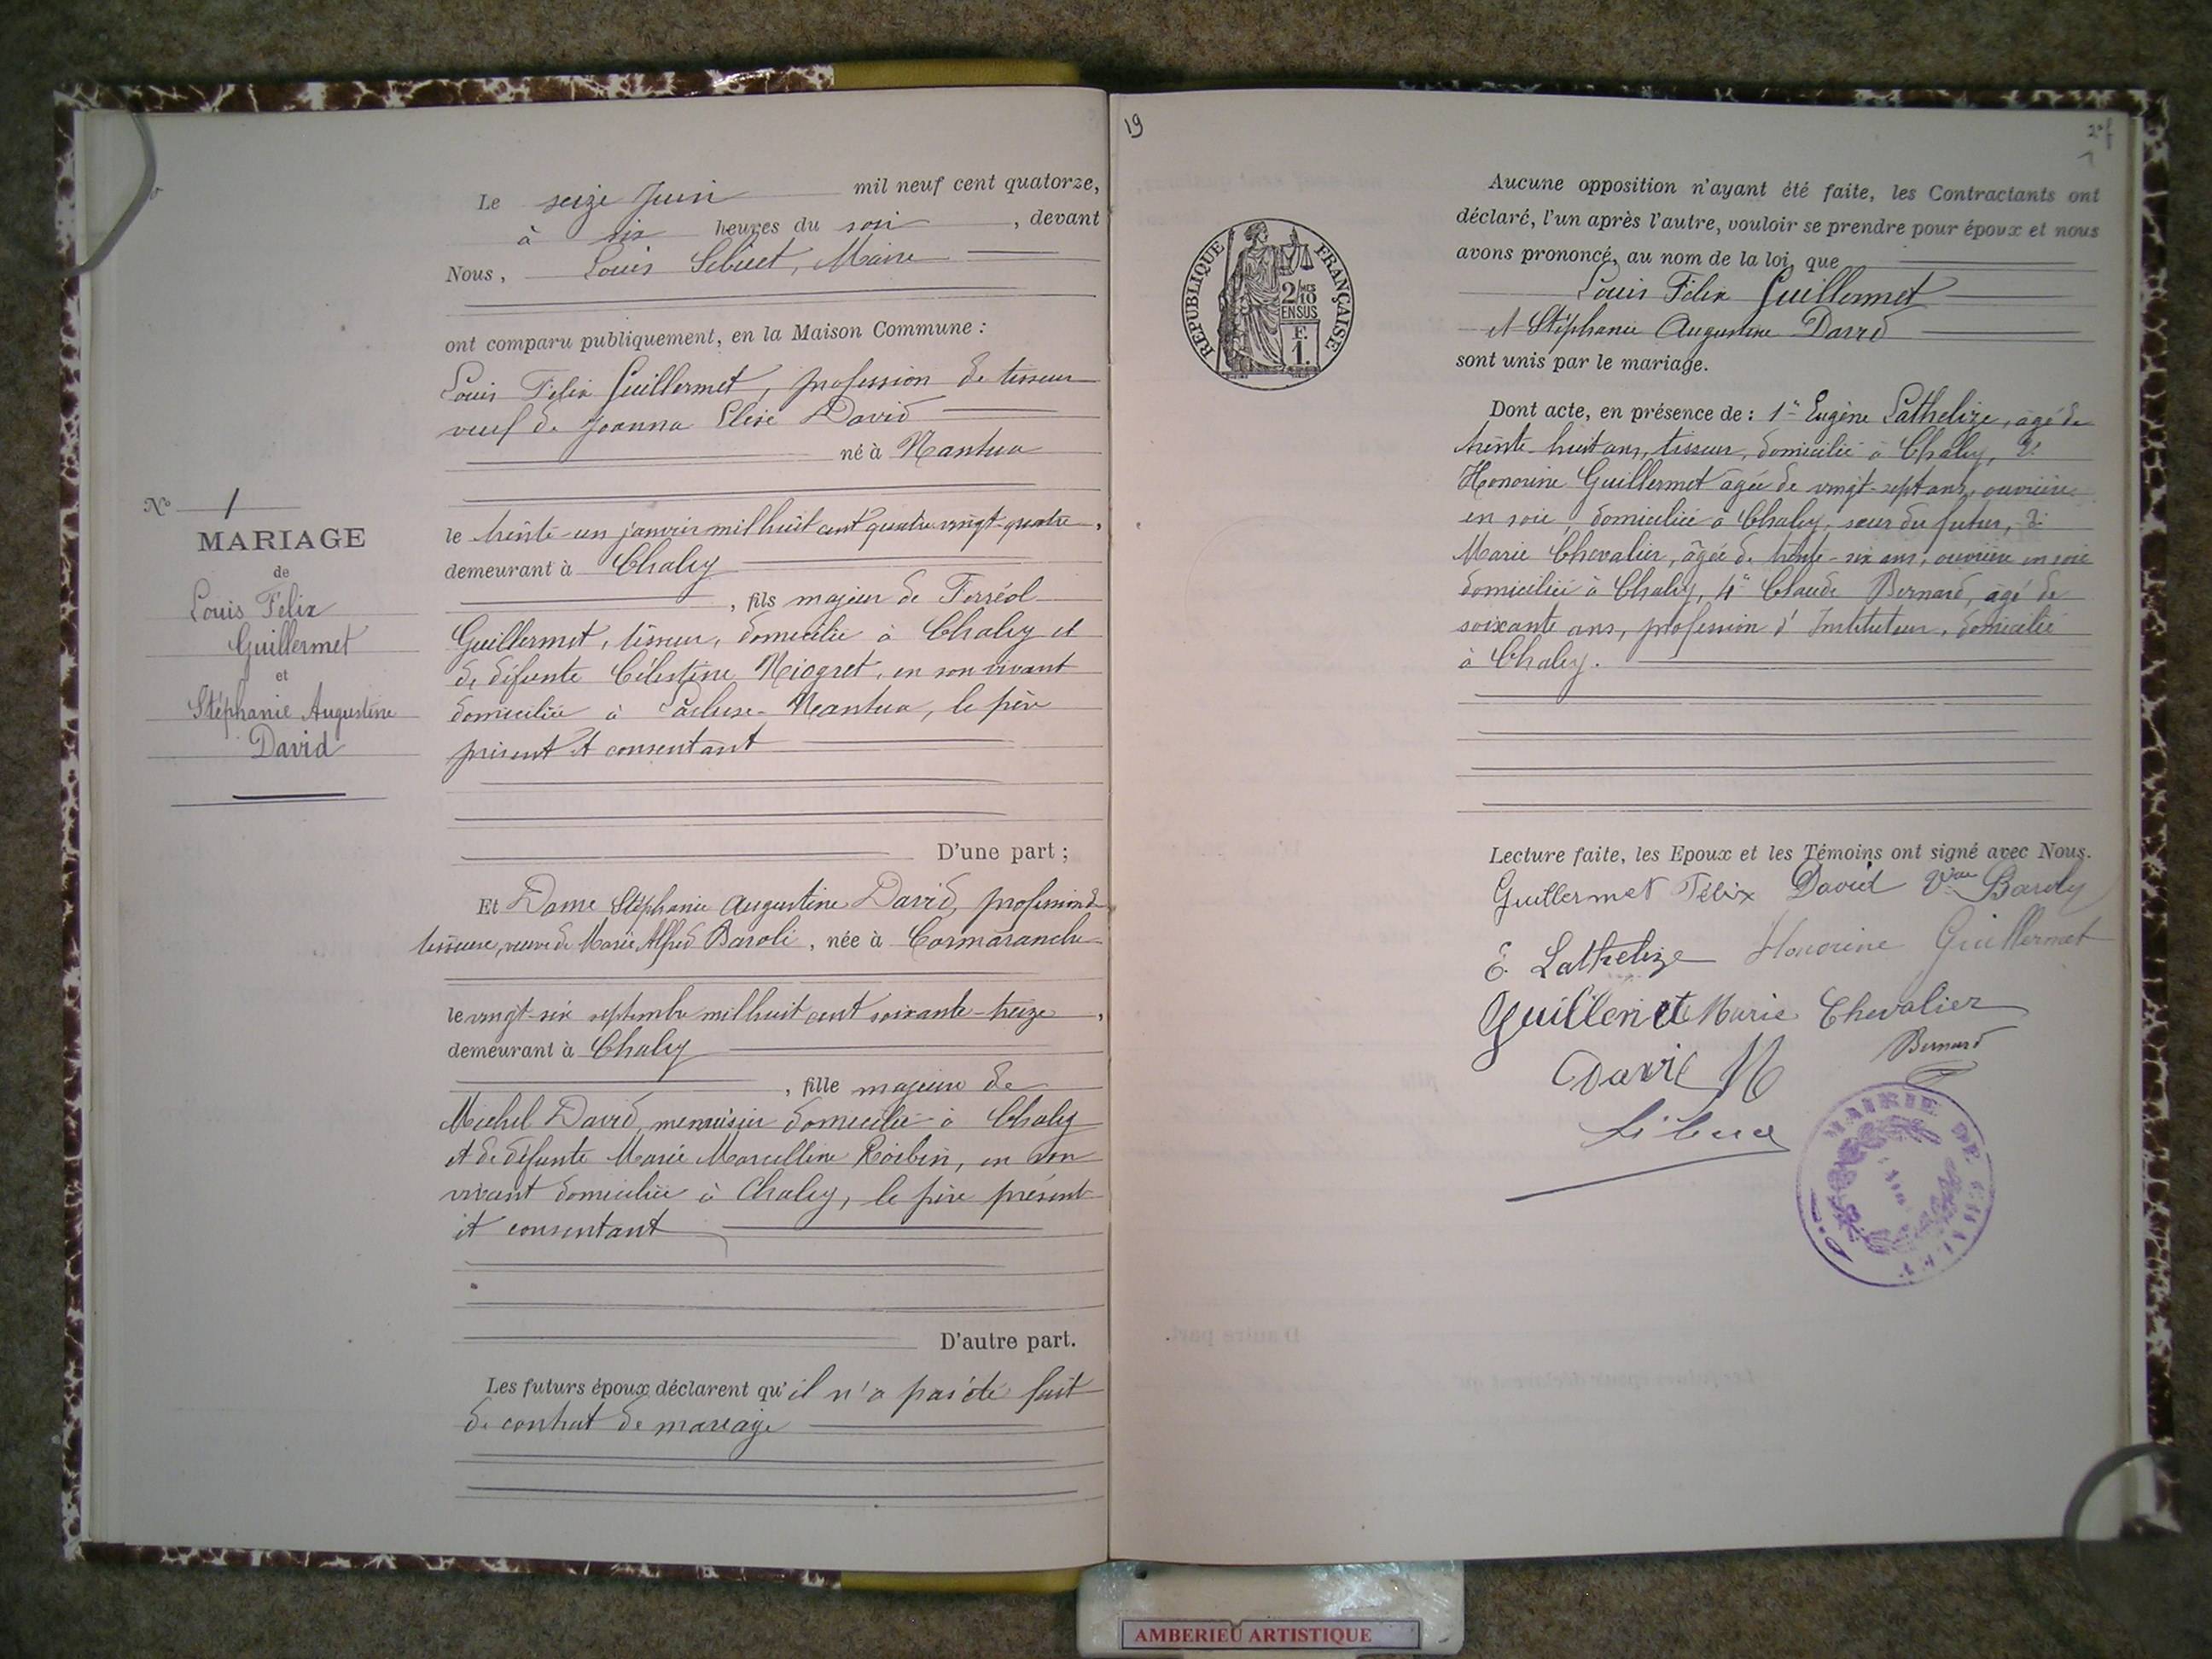 Le seize Juin mil neuf cent quatorze,
à six heures du soir, devant
Nous, Louis Maire
ont comparu publiquement, en la Maison Commune :
Louis Félix Guillermet, profession de tisseur
veuf de Joanna Elise David
né à Nantua
le trente-un janvier mil huit cent quatre vingt-quatre,
demeurant à Chaley
, fils majeur de Ferréol
Guillermet, tisseur, domicilié à Chaley et
de défunte Célestine Niogret, en son vivant
domiciliée à Lacluse-Nantua, le père
présent et consentant
D'une part ;
Et Dame Stéphanie Augustine David, profession de
tisseuse, veuve de Marie Alfred Baroli, née à Cormaranche
le vingt-six septembre mil huit cent soixante-treize,
demeurant à Chaley
, fille majeure de
Michel David, menuisier domicilié à Chaley
et de défunte Marie Marcelline Roibin, en son
vivant domiciliée à Chaley, le père présent
et consentant
D'autre part.
Les futurs époux déclarent qu'il n'a pas été fait
de contrat de mariage
N° 1
MARIAGE
de
Louis Félix
Guillermet
et
Stéphanie Augustine
David
19
RÉPUBLIQUE FRANÇAISE
2/10 MES
EN SUS
F.
1.
Aucune opposition n'ayant été faite, les Contractants ont
déclaré, l'un après l'autre, vouloir se prendre pour époux et nous
avons prononcé, au nom de la loi, que
Louis Félix Guillermet
et Stéphanie Augustine David
sont unis par le mariage.
Dont acte, en présence de : 1° Eugène Lathelize, âgé de
trente-huit ans, tisseur, domicilié à Chaley, 2°
Honorine Guillermet âgée de vingt-sept ans, ouvrière
en soie, domiciliée à Chaley, sœur du futur, 3°
Marie Chevalier, âgée de trente-six ans, ouvrière en soie
domiciliée à Chaley, 4° Claude Bernard, âgé de
soixante ans, profession d'Instituteur, domicilié
à Chaley.
Lecture faite, les Epoux et les Témoins ont signé avec Nous.
Guillermet Félix David Vve Baroly
E. Lathelize Honorine Guillermet
Guillermet Marie Chevalier
David M Bernard
MAIRIE DE CHALEY
AMBERIEU ARTISTIQUE